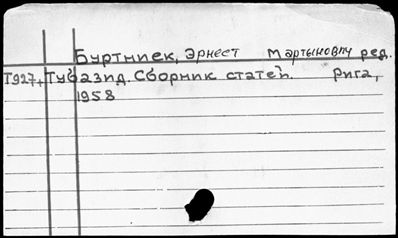 Буртниек, Эрнест Мартынович ред.
Т927+ Тубазид. Сборник статей. Рига,
1958